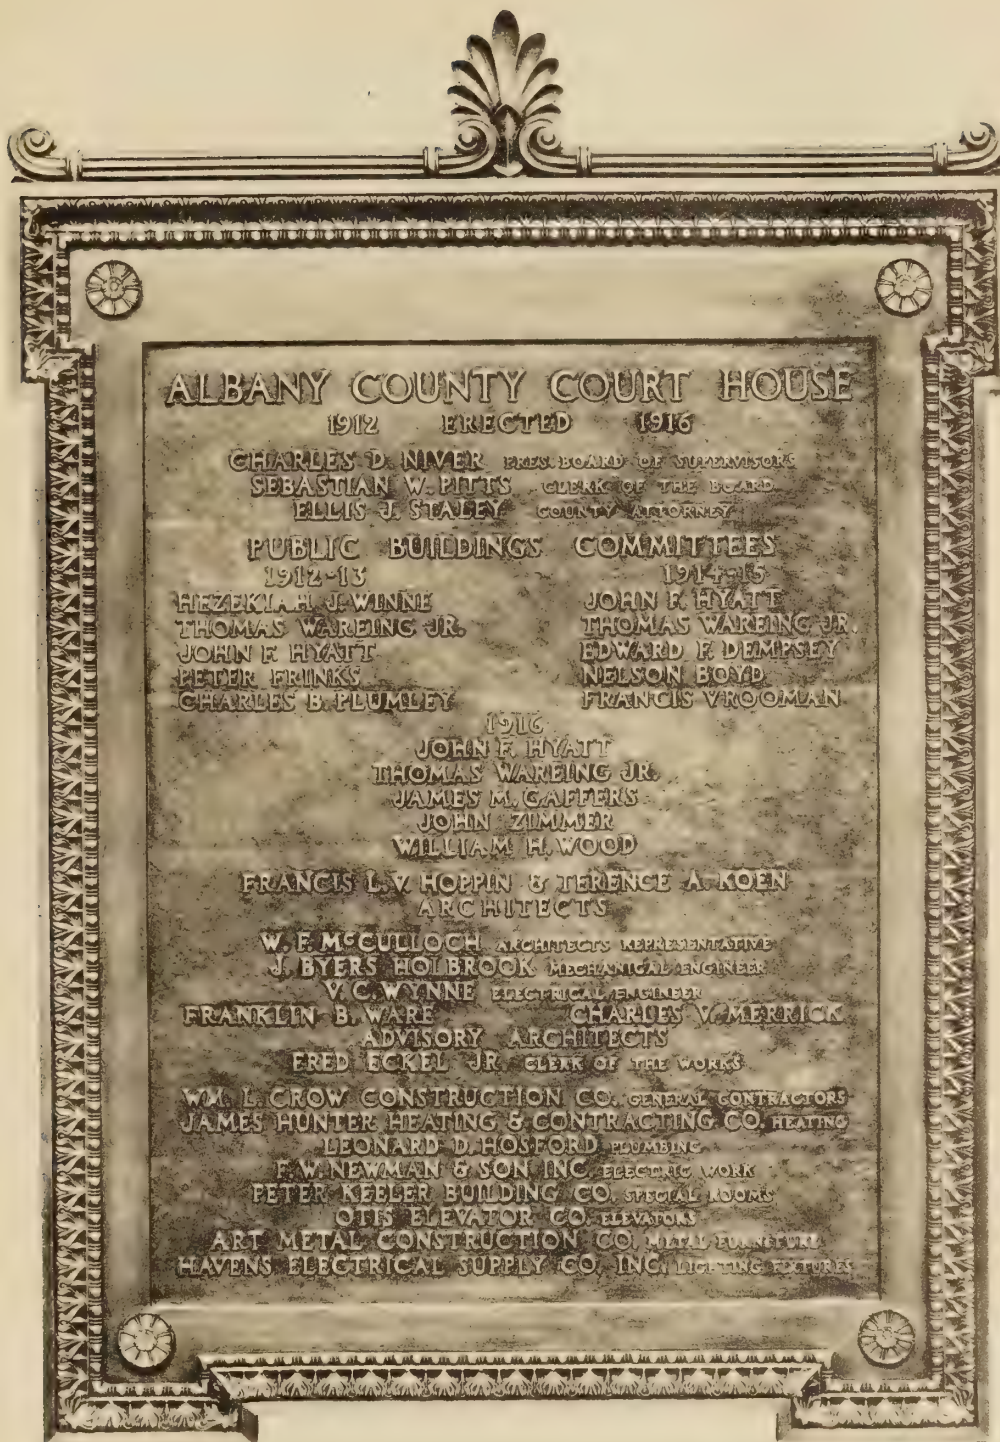 ALBANY COUNTY COURT HOUSE
1912 ERECTED 1916
CHARLES D. NIVER PRES. BOARD OF SUPERVISORS
SEBASTIAN W. PITTS CLERK OF THE BOARD
ELLIS J. STALEY COUNTY ATTORNEY
PUBLIC BUILDINGS COMMITTEES
1912-13 1914-15
HEZEKIAH J. WINNE JOHN F. HYATT
THOMAS WAREING JR. THOMAS WAREING JR.
JOHN F. HYATT EDWARD F. DEMPSEY
PETER FRINKS NELSON BOYD
CHARLES B. PLUMLEY FRANCIS VROOMAN
1916
JOHN F. HYATT
THOMAS WAREING JR.
JAMES M. GAFFERS
JOHN ZIMMER
WILLIAM H. WOOD
FRANCIS L. V. HOPPIN & TERENCE A. KOEN
ARCHITECTS
W. F. McCULLOCH ARCHITECTS REPRESENTATIVE
J. BYERS HOLBROOK MECHANICAL ENGINEER
V. C. WYNNE ELECTRICAL ENGINEER
FRANKLIN B. WARE CHARLES V. MERRICK
ADVISORY ARCHITECTS
FRED ECKEL JR. CLERK OF THE WORKS
WM. L. CROW CONSTRUCTION CO. GENERAL CONTRACTORS
JAMES HUNTER HEATING & CONTRACTING CO. HEATING
LEONARD D. HOSFORD PLUMBING
F. W. NEWMAN & SON INC. ELECTRIC WORK
PETER KEELER BUILDING CO. SPECIAL ROOMS
OTIS ELEVATOR CO. ELEVATORS
ART METAL CONSTRUCTION CO. METAL FURNITURE
HAVENS ELECTRICAL SUPPLY CO. INC. LIGHTING FIXTURES